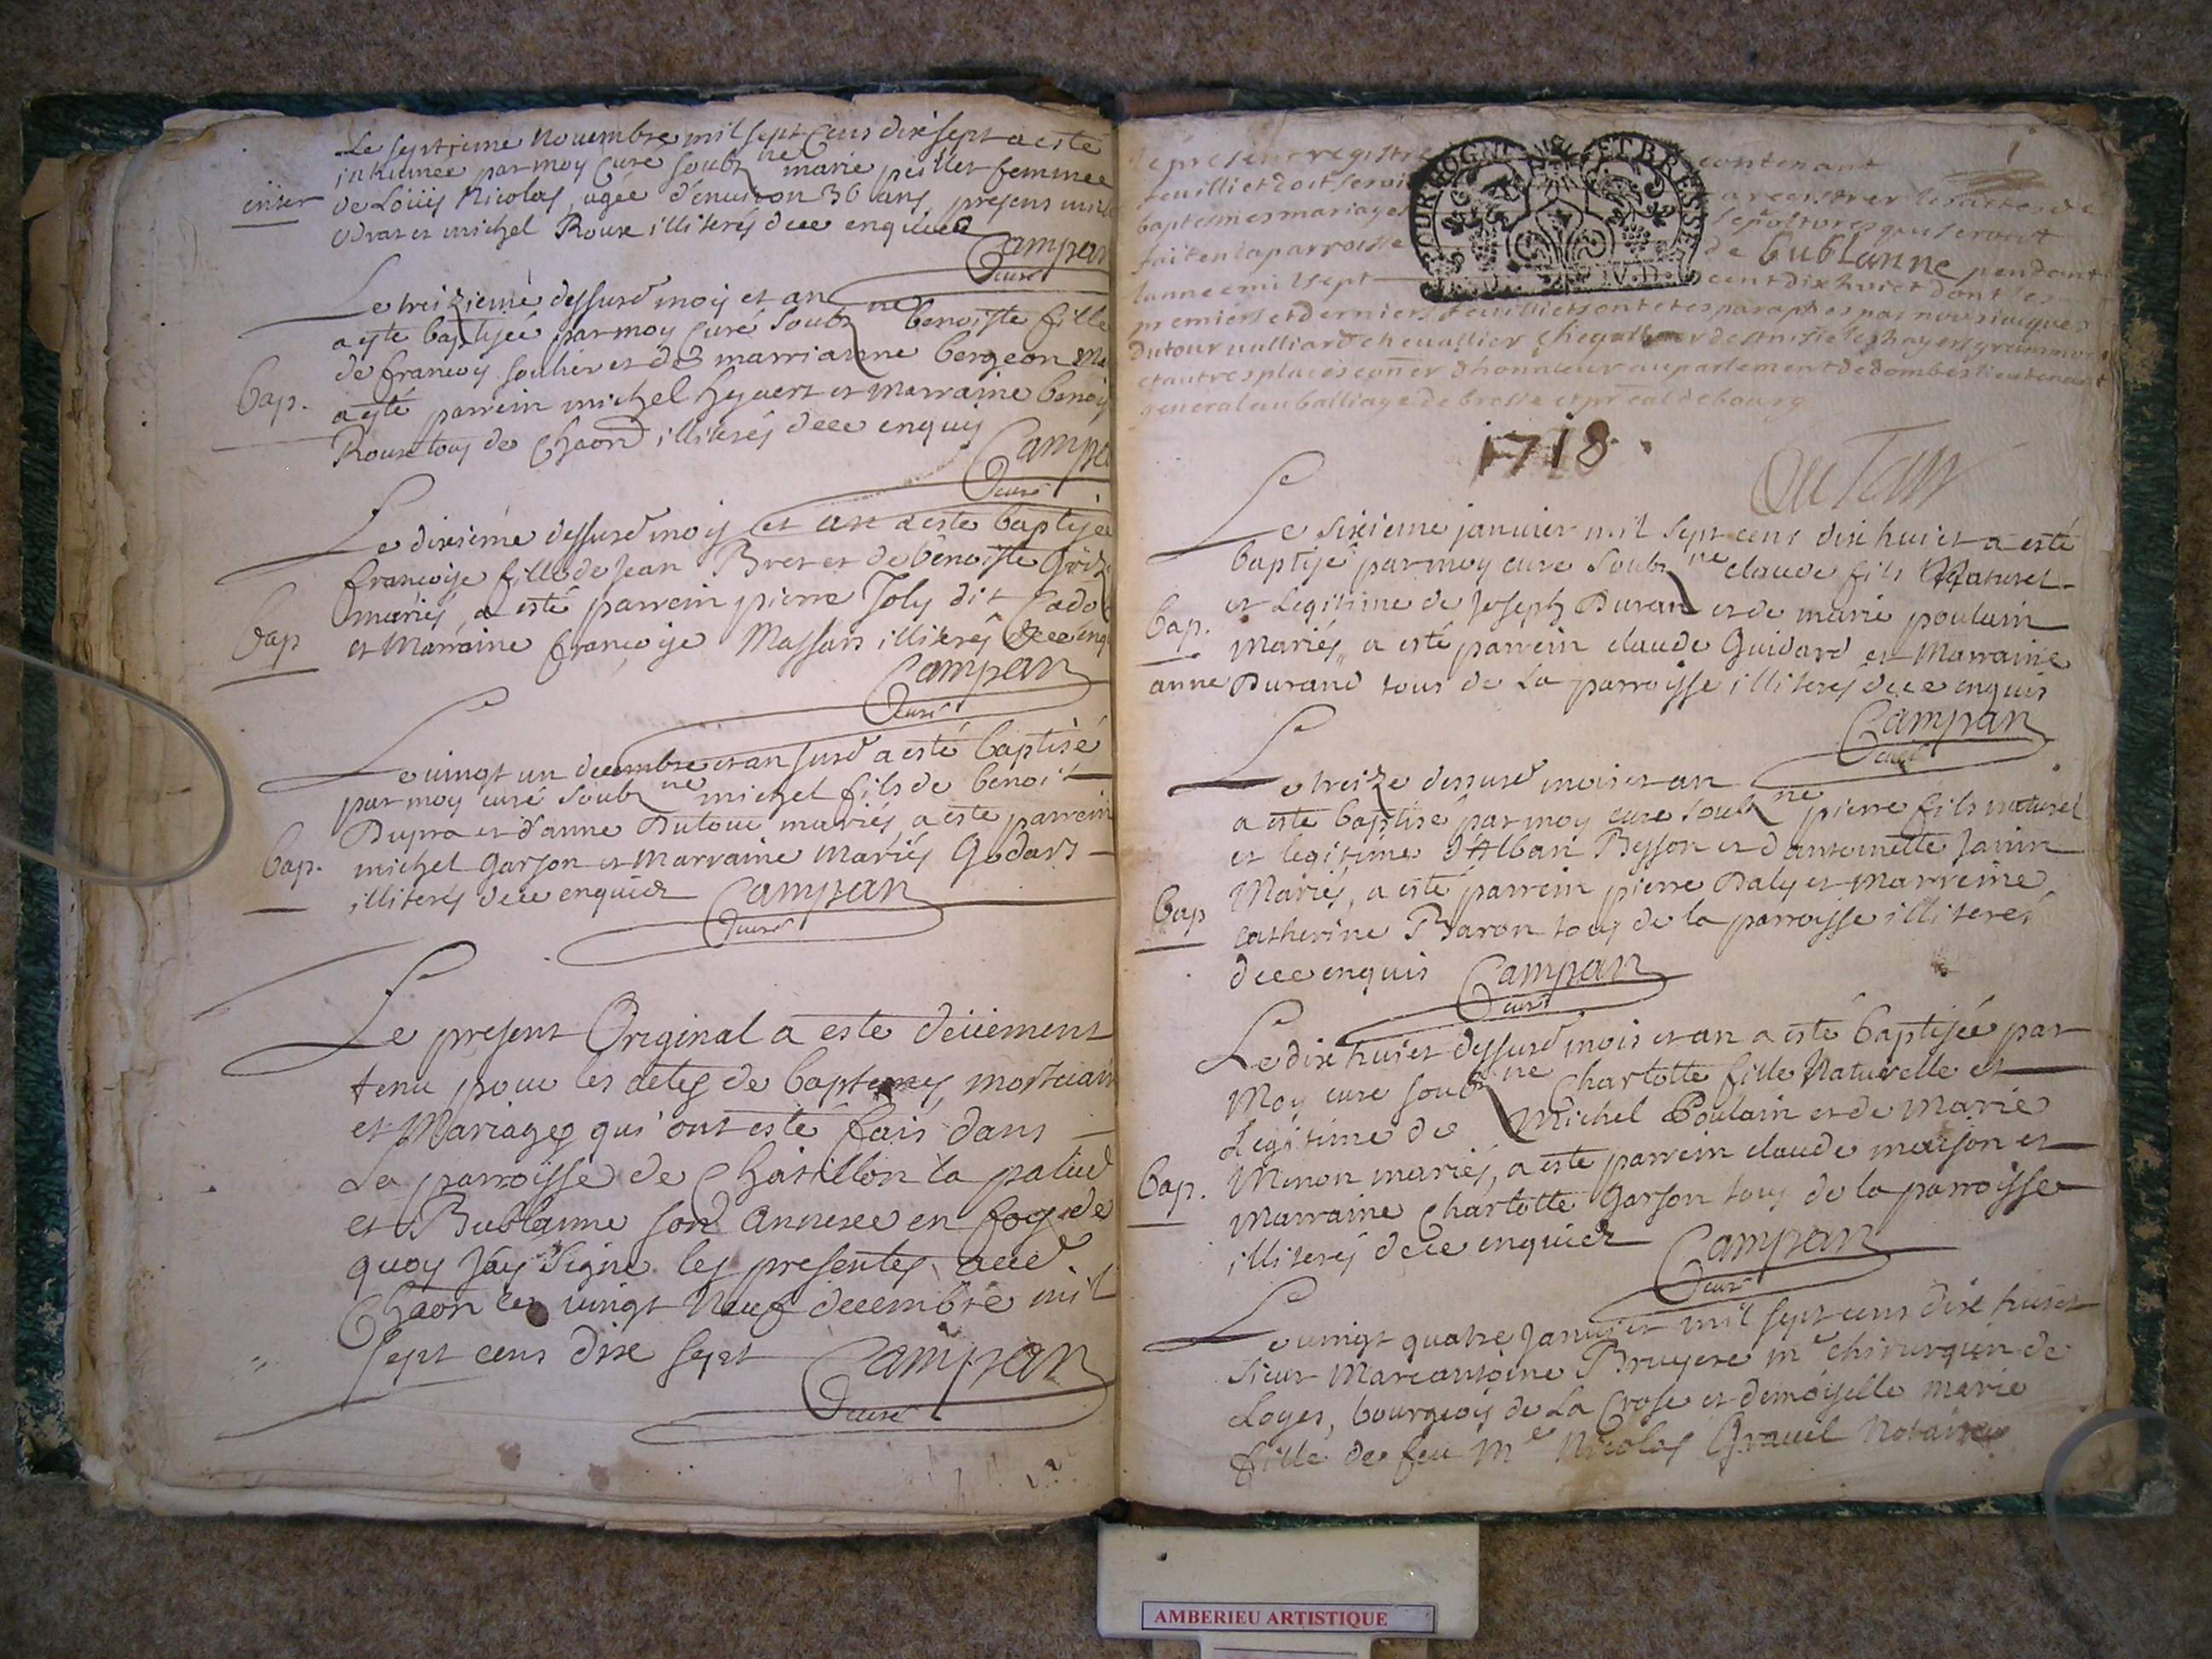 Le septieme novembre mil sept cens dixsept a esté
inhumée par moy curé soubz ne marie peillet femme
enter
de Loüis Nicolas, agée d'environ 36 ans, presens mich
et michel Roux illiterés de ce enquis
Campan
curé
Le treizieme dessusd mois et an
a esté baptisée par moy curé soubz ne benoiste fille
de françois soulier et de marrianne bergeon
bap.
a esté parrein michel et marraine benois
Roux tous de Chaon illiterés de ce enquis
Campan
curé
Le dixsiéme dessusd mois et an a esté baptisée
françoise fille de Jean Bret et de benoiste
mariés, a esté parrein pierre Joly dit
bap
et Marraine françoise Massars illiterés de ce enq
Campan
curé
Le vingt un decembre et an susd a esté baptisé
par moy curé soubz ne michel fils de benoit
Dupra et d'anne Dutour mariés, a este parrein
bap.
michel Garson et Marraine Godars
illiterés de ce enquis Campan
curé
Le present Original a este deüement
tenu pour les actes de baptemes, mortuair
et Mariages qui ont esté fais dans
La parroisse de Chatillon la palud
et Bublanne son annexe en foy de
quoy J'ay signé les presentes aud
Chaon ce vingt neuf decembre mil
sept cens dix sept Campan
curé
le present registre contenant 1
feuilliet doit servir a registrer les actes de
baptesmes mariages sepultures qui seront
fait en la parroisse de bublanne pendant
lannee mil sept cent dix huict dont les
premiers et derniers feuilliets ont etes paraphes par nous iacques
dutour vulliard chevallier
et autres places con.er d'honneur au parlement de dombes lieutenant
general au balliage de bresse et pr.eal de bourg
BOURGOG. ET BRESSE
1718.
DuTour
Le sixieme janvier mil sept cens dix huict a esté
baptisé par moy curé soubz ne claude fils Naturel
et Legitime de Joseph Duran et de marie poulain
bap.
Mariés, a esté parrein claude Guidard et Marraine
anne Durand tous de La parroisse illiterés de ce enquis
Campan
curé
Le treize dessusd mois et an
a esté baptisé par moy curé soubz ne pierre fils naturel
et legitime d'Alban Besson et d'antoinette Janin
Mariés, a esté parrein pierre Daly et Marreine
bap
catherine Baron tous de la parroisse illiterés
de ce enquis Campan
curé
Le dix huict dessusd mois et an a esté baptisée par
Moy curé soubz ne Charlotte fille Naturelle et
Legitime de Michel Poulain et de Marie
bap.
Minon mariés, a este parrein claude maison et
Marraine Charlotte Garson tous de la parroisse
illiterés de ce enquis Campan
curé
Le vingt quatre Janvier mil sept cens dix huict
sieur Marcantoine Bruyere m.e chirurgien de
Loyes, bourgeois de La Crose et demoiselle marie
fille de feu M.e Nicolas Gravel Notaire
AMBERIEU ARTISTIQUE